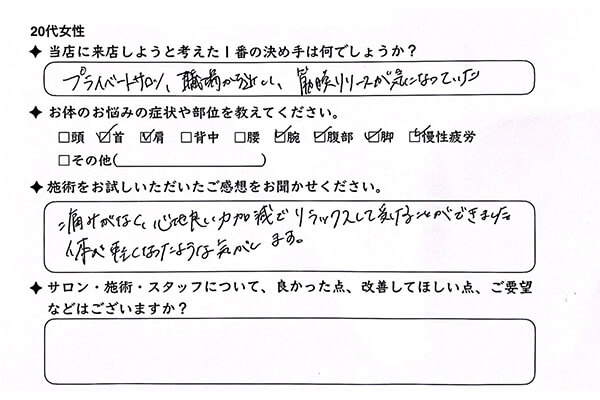 20代女性
✦ 当店に来店しようと考えた1番の決め手は何でしょうか？
プライベートサロン、職場から近い、筋膜リリースが気になっていた
✦ お体のお悩みの症状や部位を教えてください。
□頭 ☑首 ☑肩 □背中 □腰 ☑腕 ☑腹部 ☑脚 ☑慢性疲労
□その他( )
✦ 施術をお試しいただいたご感想をお聞かせください。
痛みがなく、心地良い力加減でリラックスして受けることができました。
体が軽くなったような気がします。
✦ サロン・施術・スタッフについて、良かった点、改善してほしい点、ご要望
などはございますか？